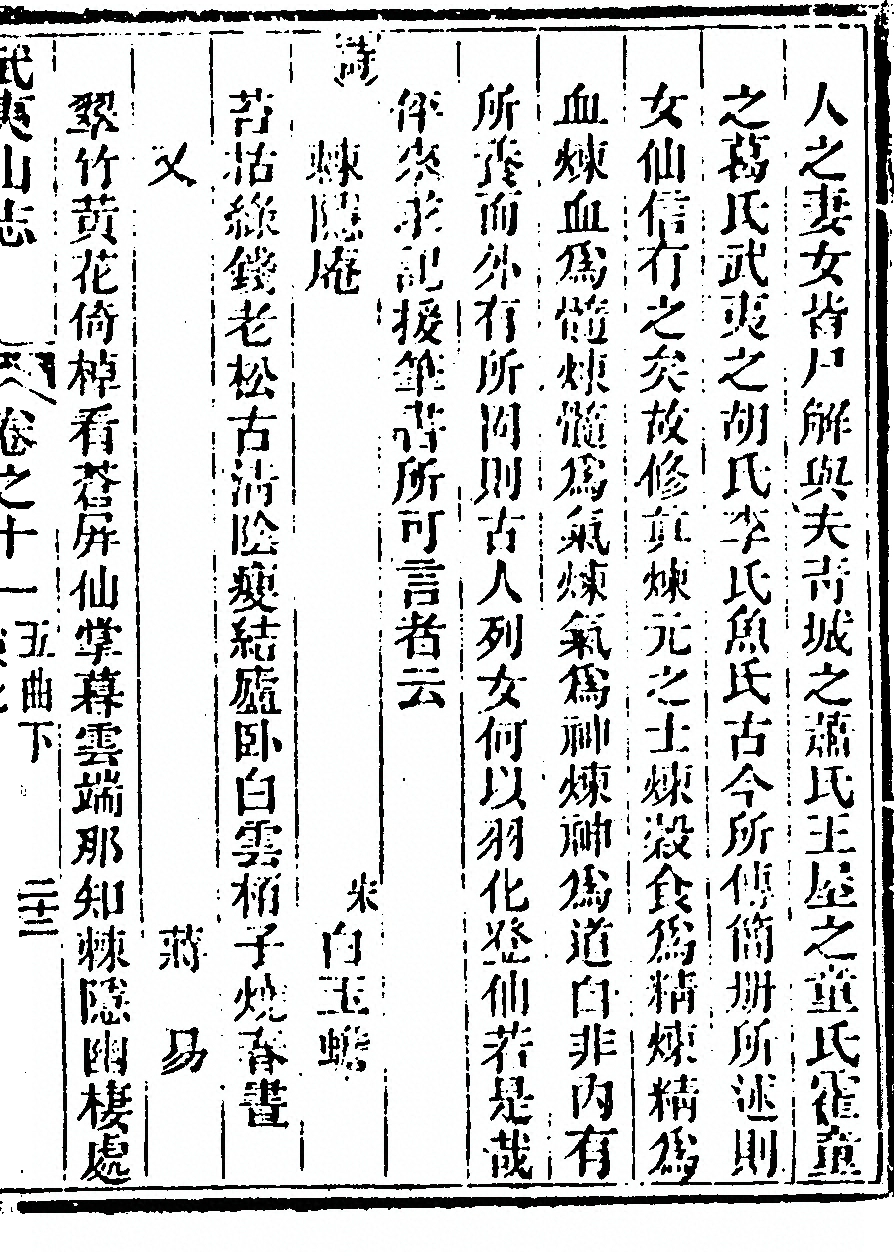 人之妻女皆尸解與夫青城之蕭氏王屋之童氏霍童
之葛氏武夷之胡氏李氏魚氏古今所傳簡册所述則
女仙信有之矣故修真煉元之士煉穀食爲精煉精爲
血煉血爲髓煉髓爲氣煉氣爲神煉神爲道自非内有
所養而外有所固則古人列女何以羽化登仙若是哉
伻來求記援筆書所可言者云
詩
棘隱庵 宋 白玉蟾
苔枯綠錢老松古清陰瘦結廬臥白雲栢子燒春晝
又 蔣易
翠竹黄花倚棹看蒼屏仙掌暮雲端那知棘隱幽棲處
武夷山志 卷之十一 五曲下 二十三